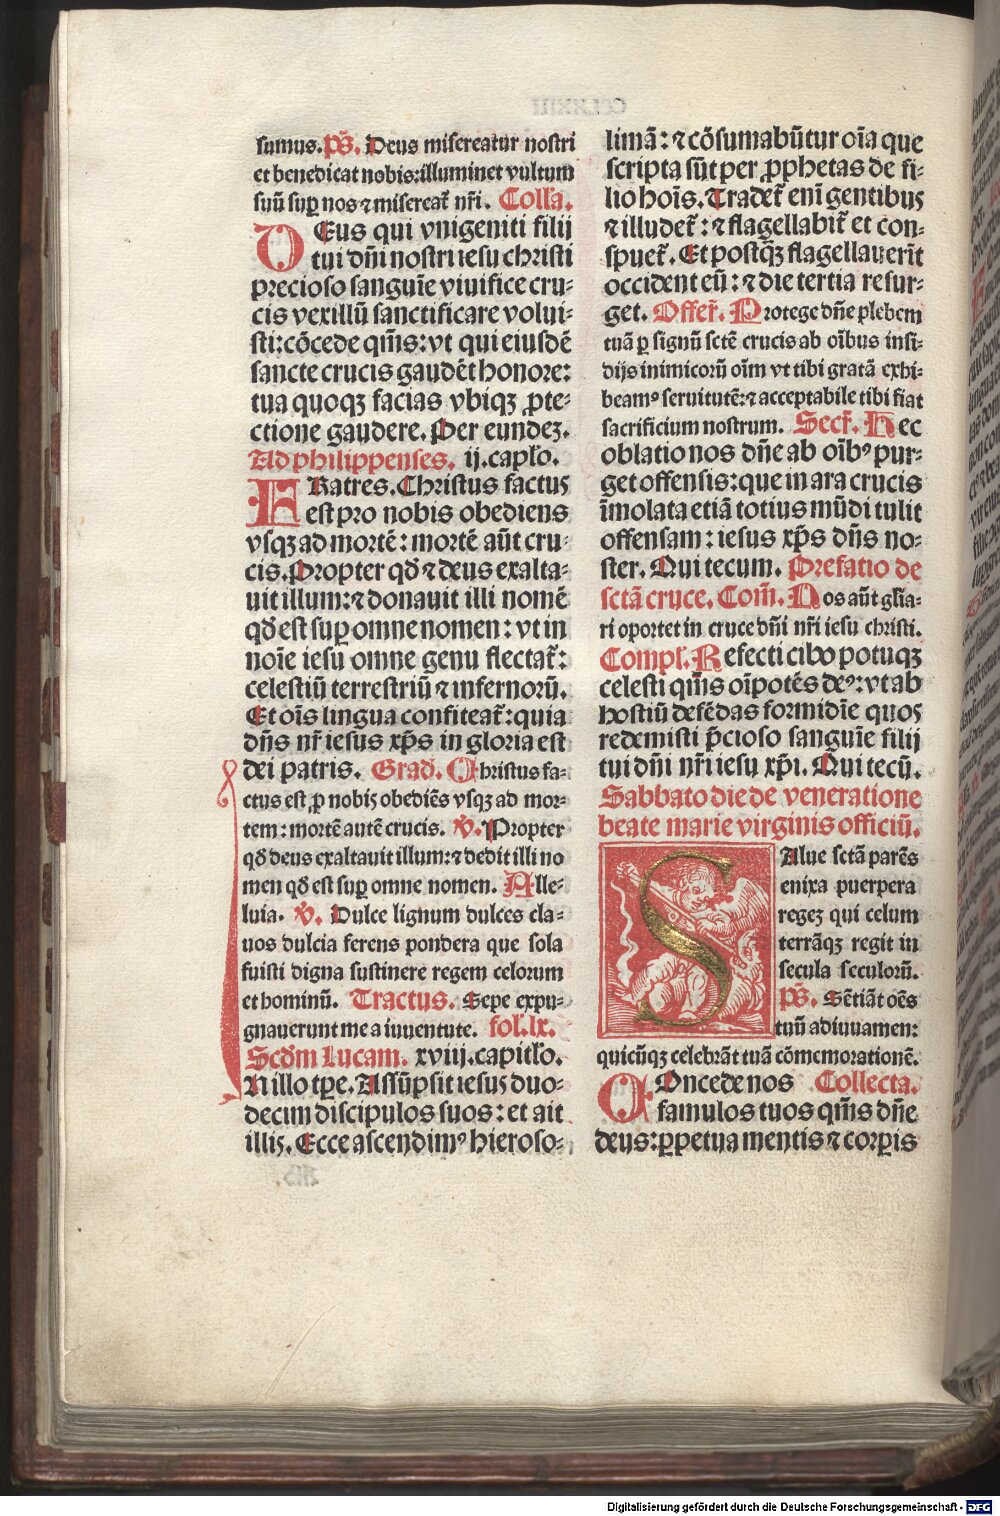 sumus. p̄s. Deus misereatur nostri
et benedicat nobis:illuminet vultum
suū suꝑ nos ⁊ misereat᷑ nr̄i. Colla.
DEus qui vnigeniti filij
tui dn̄i nostri iesu christi
precioso sanguīe viuifice cru-
cis vexillū sanctificare volui-
sti: cōcede qm̄s: vt qui eiusdē
sancte crucis gaudēt honore:
tua quoqꝫ facias vbiqꝫ ꝓte-
ctione gaudere. Per eundeꝫ.
Ad philippenses. ij. capľo.
FRatres. Christus factus
est pro nobis obediens
vsqꝫ ad mortē: mortē aūt cru-
cis. Propter qđ ⁊ deus exalta-
uit illum: ⁊ donauit illi nomē
qđ est suꝑ omne nomen: vt in
noīe iesu omne genu flectat᷑:
celestiū terrestriū ⁊ infernorū.
Et oīs lingua confiteat᷑: quia
dn̄s nr̄ iesus xp̄s in gloria est
dei patris. Grad. Christus fa-
ctus est ꝓ nobis obediēs vsqꝫ ad mor-
tem: mortē autē crucis. ℣. Propter
qđ deus exaltauit illum: ⁊ dedit illi no
men qđ est suꝑ omne nomen. Alle-
luia. ℣. Dulce lignum dulces cla-
uos dulcia ferens pondera que sola
fuisti digna sustinere regem celorum
et hominū. Tractus. Sepe expu-
gnauerunt me a iuuentute. fol. lx.
Scđm Lucam. xviij. capitľo.
IN illo tꝑe. Assūpsit iesus duo-
decim discipulos suos: et ait
illis. Ecce ascendimꝰ hieroso-
limā: ⁊ cōsumabūtur oīa que
scripta sūt per ꝓphetas de fi-
lio hoīs. Tradet᷑ enī gentibus
⁊ illudet᷑: ⁊ flagellabit᷑ et con-
spuet᷑. Et postqꝫ flagellauerīt
occident eū: ⁊ die tertia resur-
get. Offer᷑. Protege dn̄e plebem
tuā ꝑ signū sctē crucis ab oībus insi-
dijs inimicorū oīm vt tibi gratā exhi-
beamꝰ seruitutē: ⁊ acceptabile tibi fiat
sacrificium nostrum. Secr᷑. Hec
oblatio nos dn̄e ab oībꝰ pur-
get offensis: que in ara crucis
īmolata etiā totius mūdi tulit
offensam: iesus xp̄s dn̄s no-
ster. Qui tecum. Prefatio de
sctā cruce. Com̄. Nos aūt glīa-
ri oportet in cruce dn̄i nr̄i iesu christi.
Compl᷑. Refecti cibo potuqꝫ
celesti qm̄s oīpotēs deꝰ: vt ab
hostiū defēdas formidīe quos
redemisti p̄cioso sanguīe filij
tui dn̄i nr̄i iesu xp̄i. Qui tecū.
Sabbato die de veneratione
beate marie virginis officiū.
SAlue sctā parēs
enixa puerpera
regeꝫ qui celum
terrāqꝫ regit in
secula seculorū.
p̄s. Sētiāt oēs
tuū adiuuamen:
quicūqꝫ celebrāt tuā cōmemorationē.
COncede nos Collecta.
famulos tuos qm̄s dn̄e
deus: ꝑpetua mentis ⁊ corꝑis
Digitalisierung gefördert durch die Deutsche Forschungsgemeinschaft - DFG